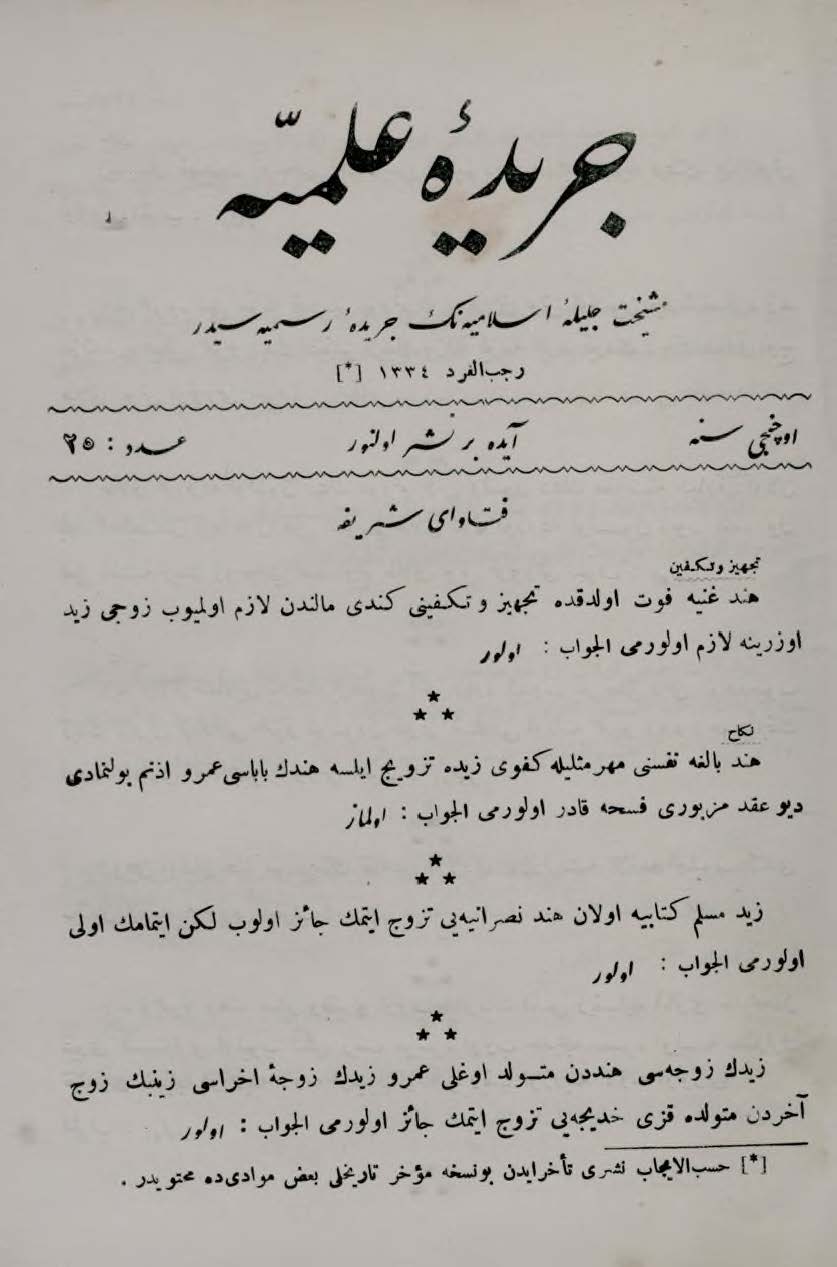 جريدۀ علميّه
مشيخت جليلۀ اسلاميه‌نك جريدۀ رسميه سيدر
رجب‌الفرد ١٣٣٤ [*]
اوچنجى سنه آيده بر نشر اولنور عدد : ٢٥
فتاواى شريفه
تجهيز وتكفين
هند غنيه فوت اولدقده تجهيز و تكفينى كندى مالندن لازم اولميوب زوجى زيد
اوزرينه لازم اولورمى الجواب : اولور
نكاح
هند بالغه نفسنى مهرمثليله كفوى زيده تزويج ايلسه هندك باباسى عمرو اذنم بولنمادى
ديو عقد مزبورى فسخه قادر اولورمى الجواب : اولماز
زيد مسلم كتابيه اولان هند نصرانيه‌يى تزوج ايتمك جائز اولوب لكن ايتمامك اولى
اولورمى الجواب : اولور
زيدك زوجه‌سى هنددن متولد اوغلى عمرو زيدك زوجۀ اخراسى زينبك زوج
آخردن متولده قزى خديجه‌يى تزوج ايتمك جائز اولورمى الجواب : اولور
[*] حسب‌الايجاب نشرى تأخرايدن بونسخه مؤخر تاريخلى بعض موادى‌ده محتويدر .